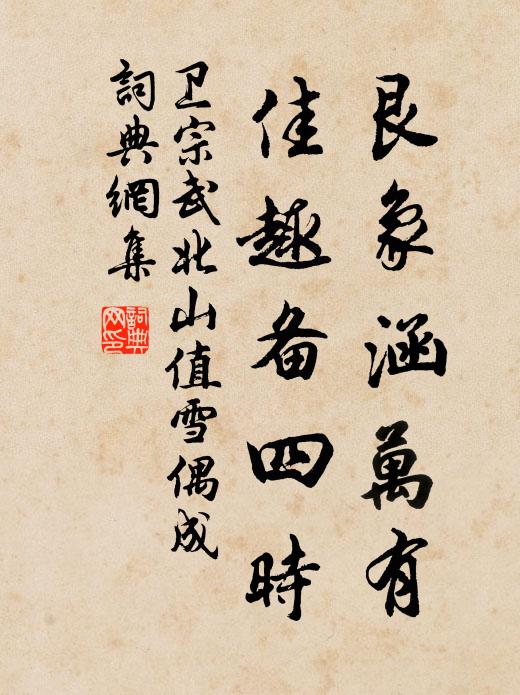 艮象涵萬有
佳趣备四時
卫宗武北山值雪偶成
詞典網集
詞典
网印